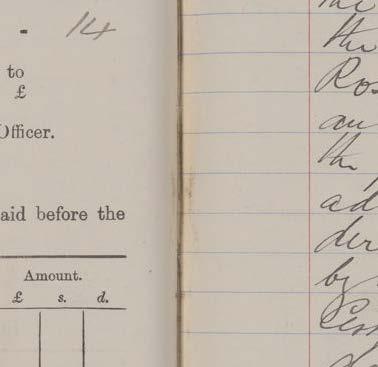 - 14
to
£
Officer.
aid before the
Amount.
£ s. d.
the
the
Ros
an
the
ad
der
by